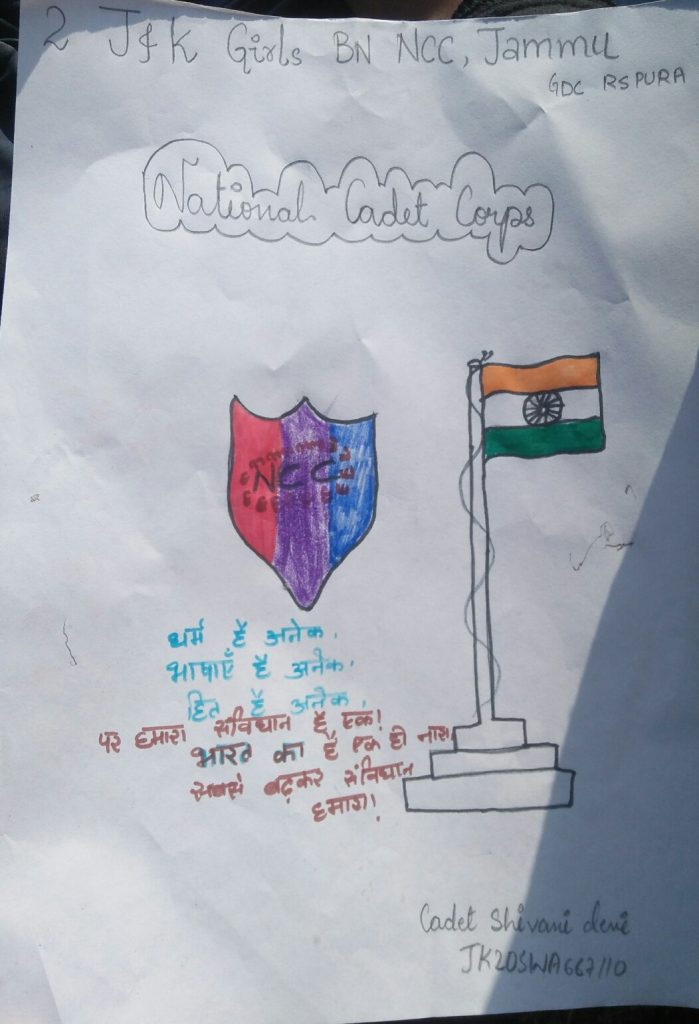 2 J&K Girls BN NCC, Jammu
GDC RSPURA
National Cadet Corps
NCC
धर्म है अनेक,
भाषाएँ है अनेक,
हित है अनेक,
पर हमारा संविधान है एक!
भारत का है एक ही नारा
सबसे बढ़कर संविधान
हमारा!
Cadet Shivani devi
JK20SWA667110